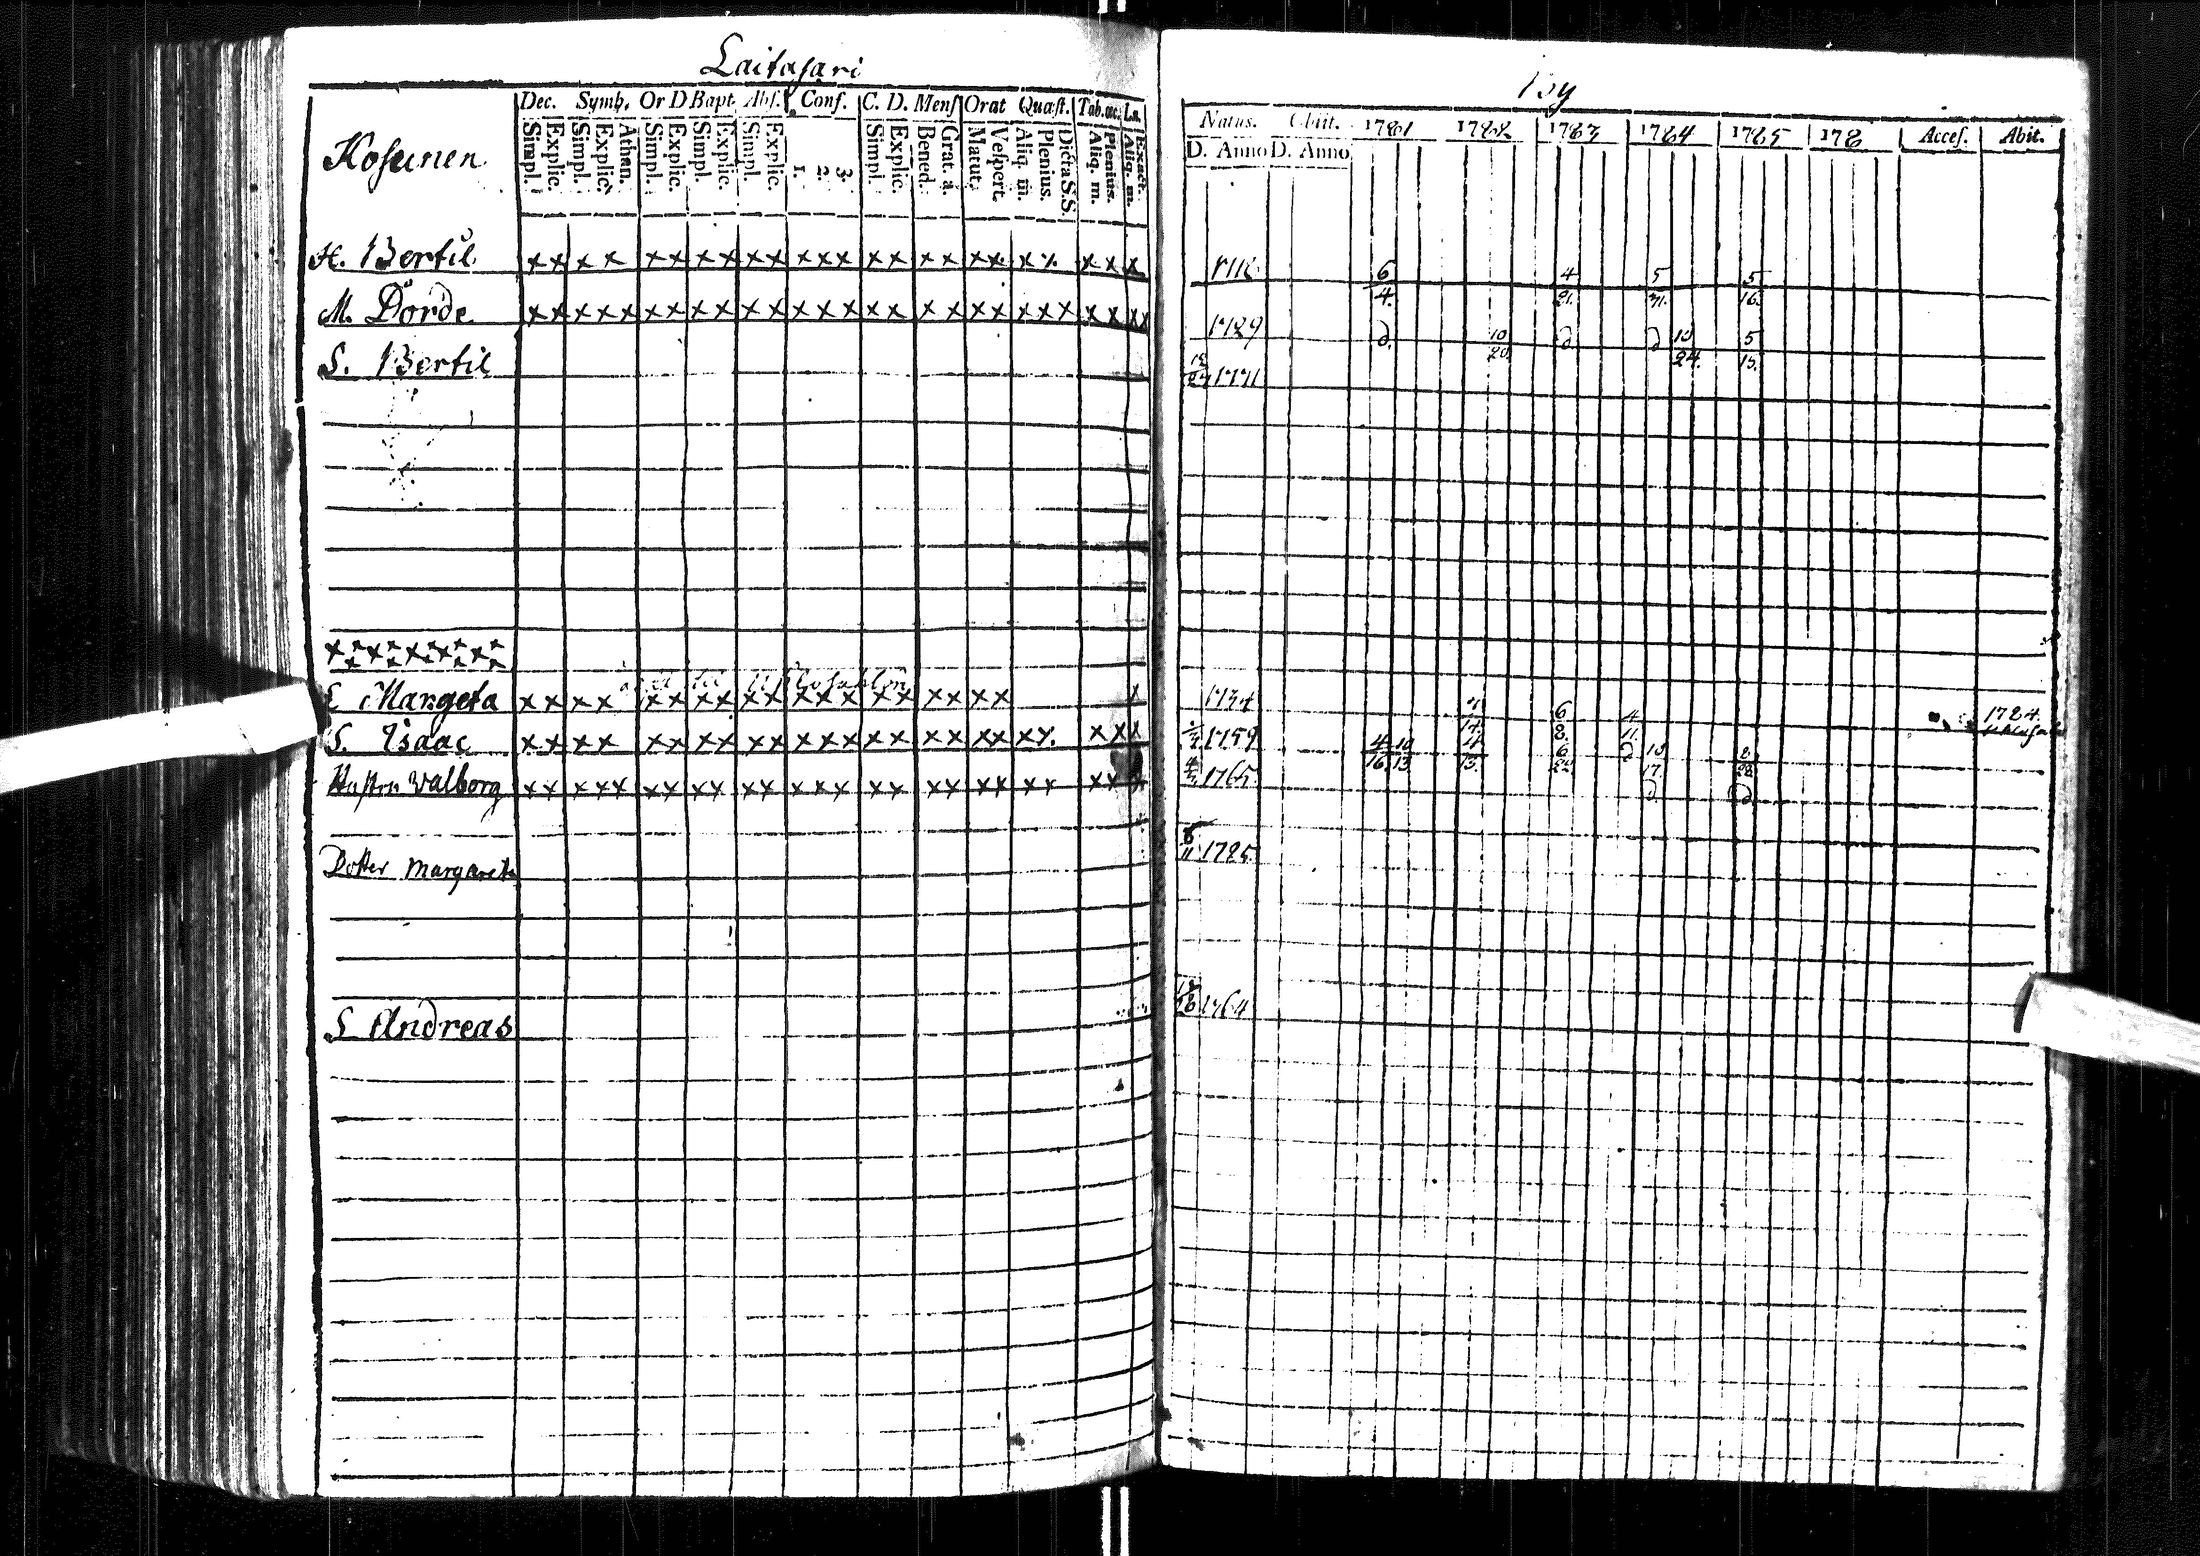 Laitasari
By
Dec. Symb. Or D Bapt. Abs. Conf. C. D. Mens Orat Quæst. Tab. œc.
Simpl. Explic. Simpl. Explic. Athan. Simpl. Explic. Simpl. Explic. Simpl. Explic. 1. 2. 3. Simpl. Explic. Bened. Grat. a. Matut. Vespert. Aliq. m. Plenius. Dicta S.S. Aliq. m. Plenius. Aliq. m. Exact.
Natus. Obiit. 1781 1782 1783 1784 1785 178 Acces. Abit.
D. Anno D. Anno
Kosunen
H. Bertil x x x x x x x x x x x x x x x x x x x x x x x x
6/4 4/21. 5/31. 5/16.
M. Dorde x x x x x x x x x x x x x x x x x x x x x x x x x x
1729 d. 10/20 d. d 10/24. 5/15.
S. Bertil
12/27 1771
E Margeta x x x x x x x x x x x x x x x x x x x
1734 6/8. 4/11. 1784
S. Isaac x x x x x x x x x x x x x x x x x x x x x x x x
1759 4/16 10/13 6/22 d 10/17.
Hustru Valborg x x x x x x x x x x x x x x x x x x x x x x x x x
1765 d d.
Dotter Margareta
8/11 1785
S Andreas
1764